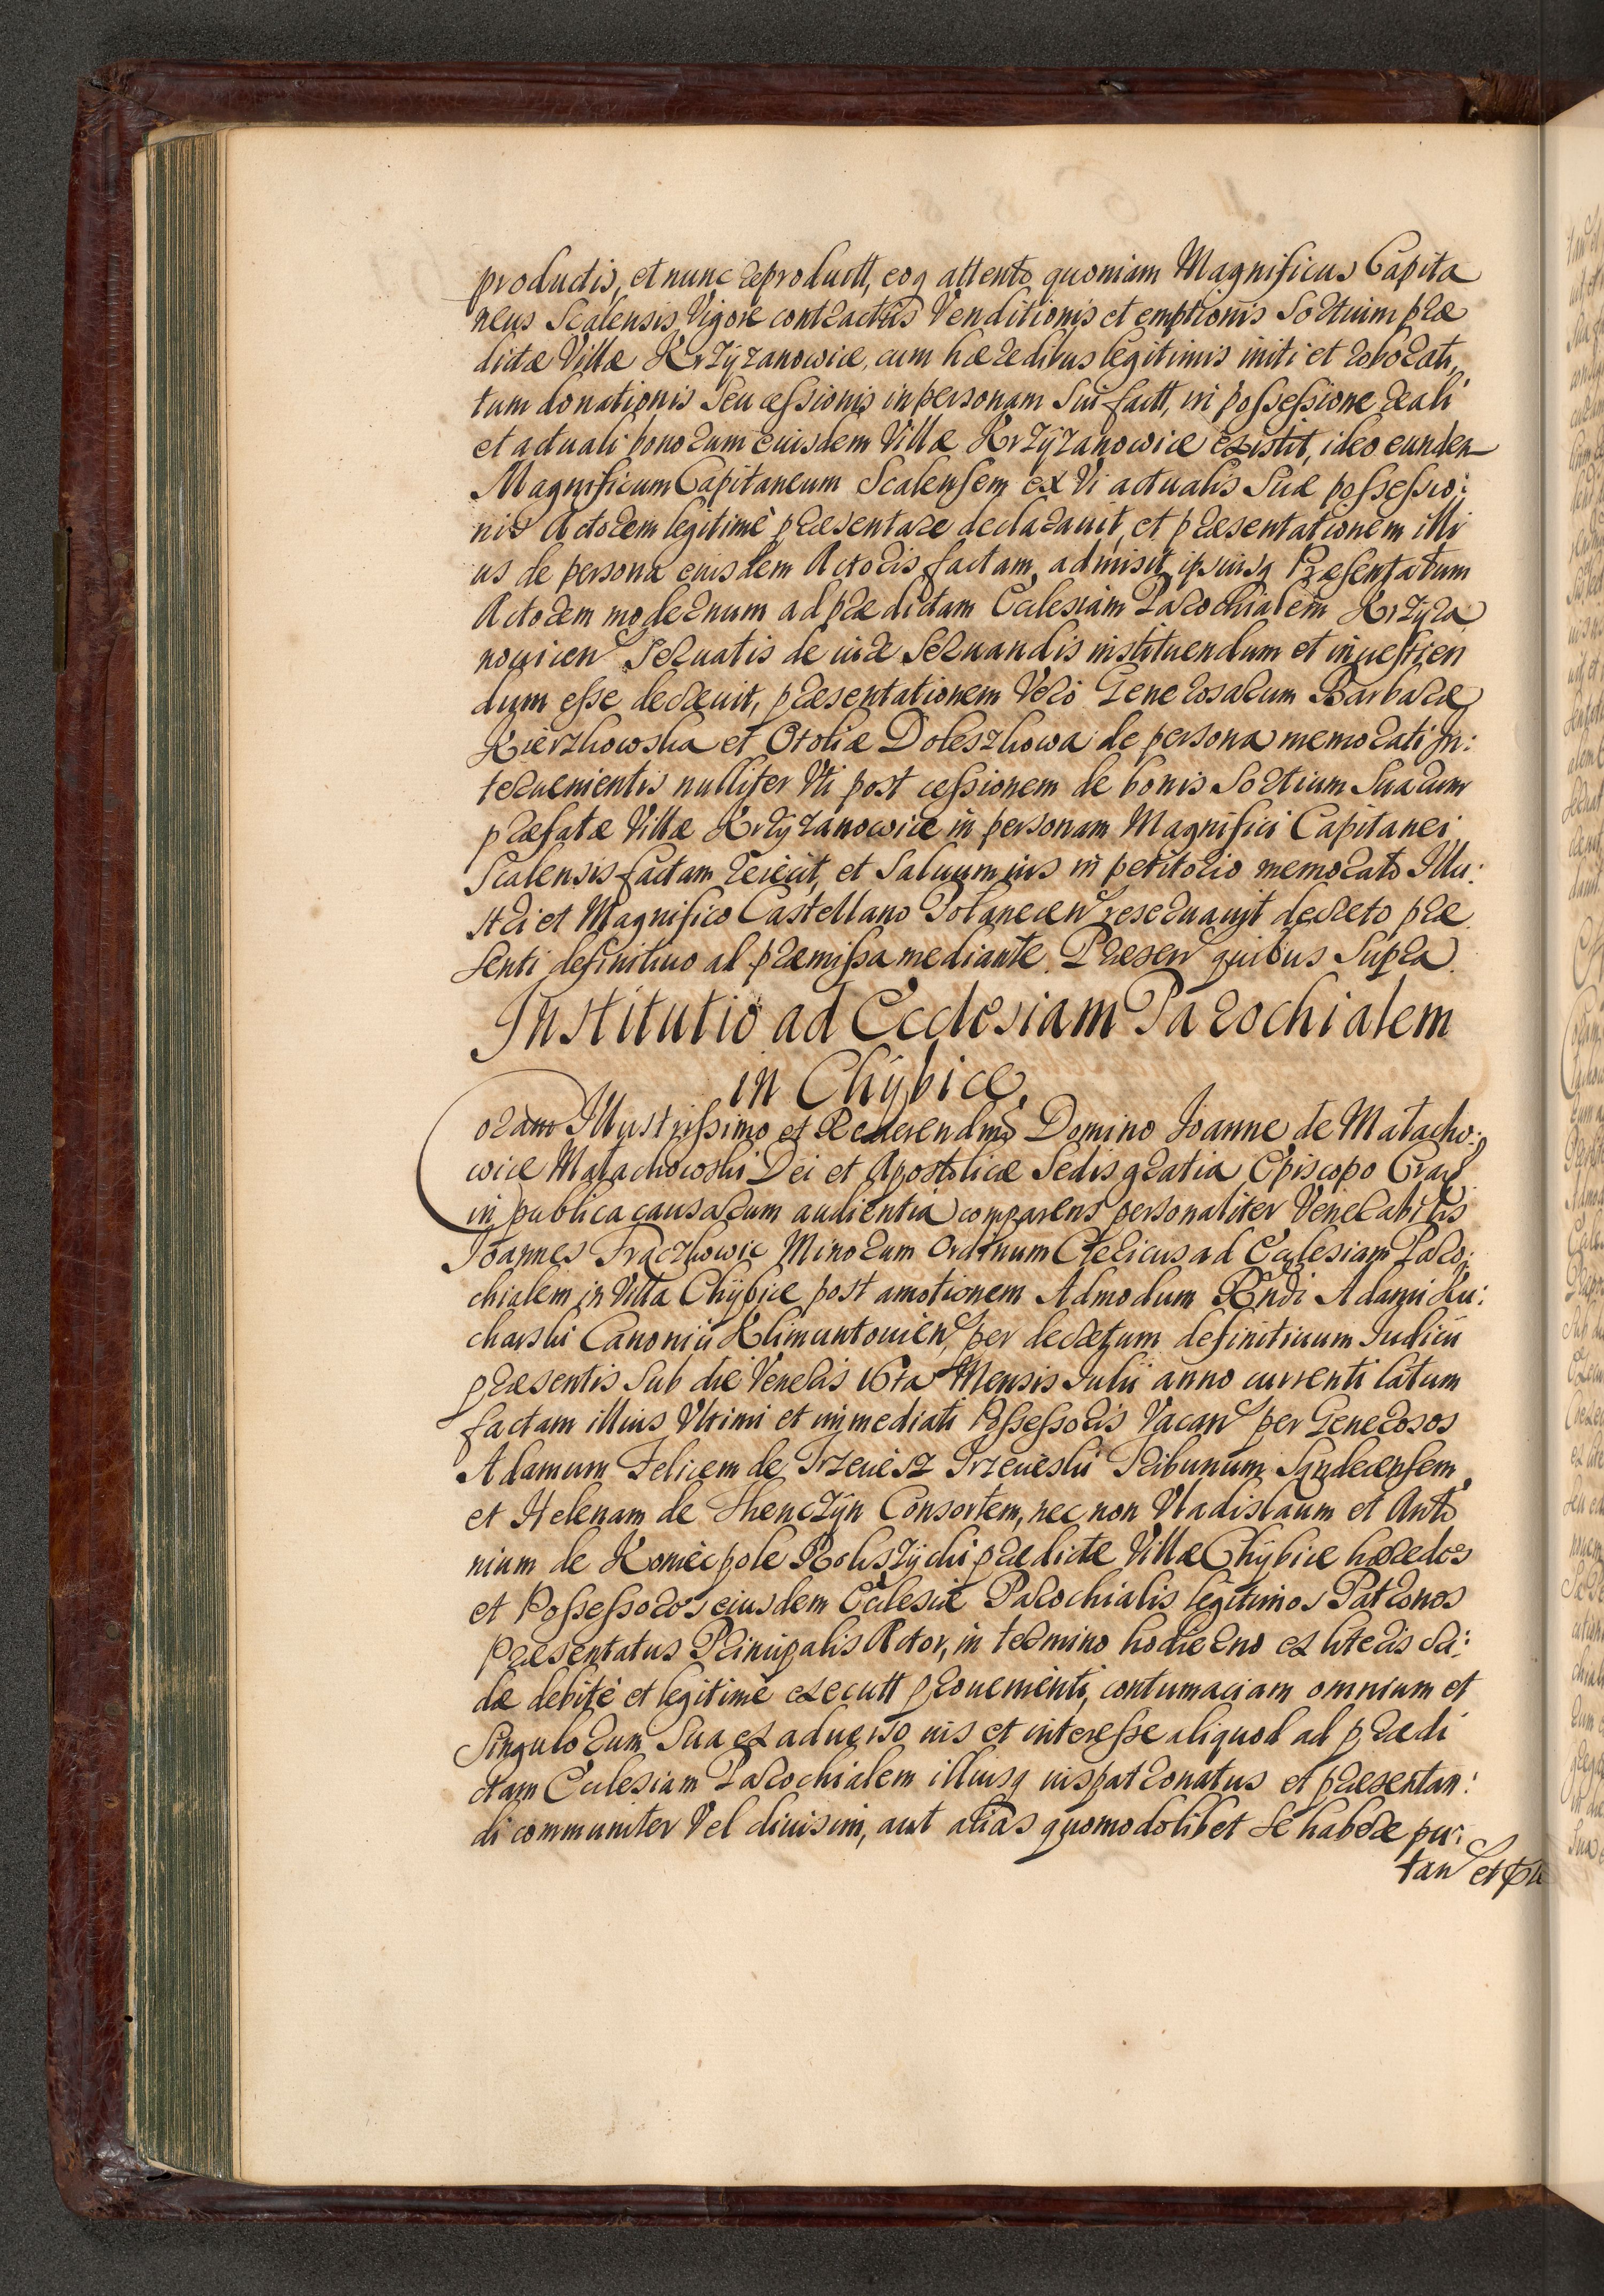 productis, et nunc reproductt, eoq attento, quoniam Magnificus Capita
neus Scalensis Vigore contractus Venditionis et emptionis Sortium præ
dictæ Villæ Krzÿzanowice, cum hæredibus legitimis initi et roborati,
tum donationis Seu cessionis in personam Sui factt, in possessione reali
et actuali bonorum euisdem Villæ Krzÿzanowice existit, ideo eundem
Magnificum Capitaneum Scalensem ex Vi actualis Suæ possessio:
nis Actorem legitimè præsentare declarauit, et præsentationem illi
us de persona eiusdem Actoris factam, admisit, ipsiusq Præsentatum
Actorem modernum ad prædictam Ecclesiam Parochialem Krzyza
nouicen Seruatis de iure Seruandis instituendum et inuestien
dum esse decreuit, præsentationem Verò Generosarum Barbaræ
Kierzkowska et Otoliæ Doleszkowa de persona memorati In:
teruenientis nulliter Vti post cessionem de bonis Sortium Suarum
præfatæ Villæ Krzÿzanowice in personam Magnifici Capitanei
Scalensis factam reiecit, et Saluum ius in petitorio memorato Illu:
stri et Magnifico Castellano Polanecen reseruauit decreto præ
senti definitiuo ad præmissa mediante. Præsen quibus Supra.
Institutio ad Ecclesiam Parochialem
in Chÿbice.
Coram Illustrissimo et Reuerendmo Domino Joanne de Malacho:
wice Malachowski Dei et Apostolicæ Sedis gratia Episcopo Crac
in publica causarum audientia comparens personaliter Venerabilis
Joannes Fraczkowic Minorum Ordinum Clericus ad Ecclesiam Paro:
chialem in Villa Chÿbice post amotionem Admodum Rndi Adami Ku:
charski Canonici Klimuntouien, per decretum definitiuum Iudicii
præsentis Sub die Veneris 16ta Mensis Iulii anno currenti latum
factam illius Vltimi et immediati Possessoris Vacan per Generosos
Adamum Felicem de Trzeuiesz Trzeuieski Tribunum Sandecensem
et Helenam de Thenczÿn Consortem, nec non Vladislaum et Anto
nium de Koniecpole Rokszÿcki prædictæ Villæ Chÿbice hæredes
et Possessores eiusdem Ecclesiæ Parochialis legitimos Patronos
præsentatus Principalis Actor, in termino hodierno ex literis Cri:
dæ debitè et legitimè executt proueniente, contumaciam omnium et
Singulorum Sua ex aduerso ius et interesse aliquod ad prædi
ctam Ecclesiam Parochialem illiusq iuspatronatus et præsentan:
di communiter Vel diuisim, aut alias quomodolibet Se habere pu:
tan et